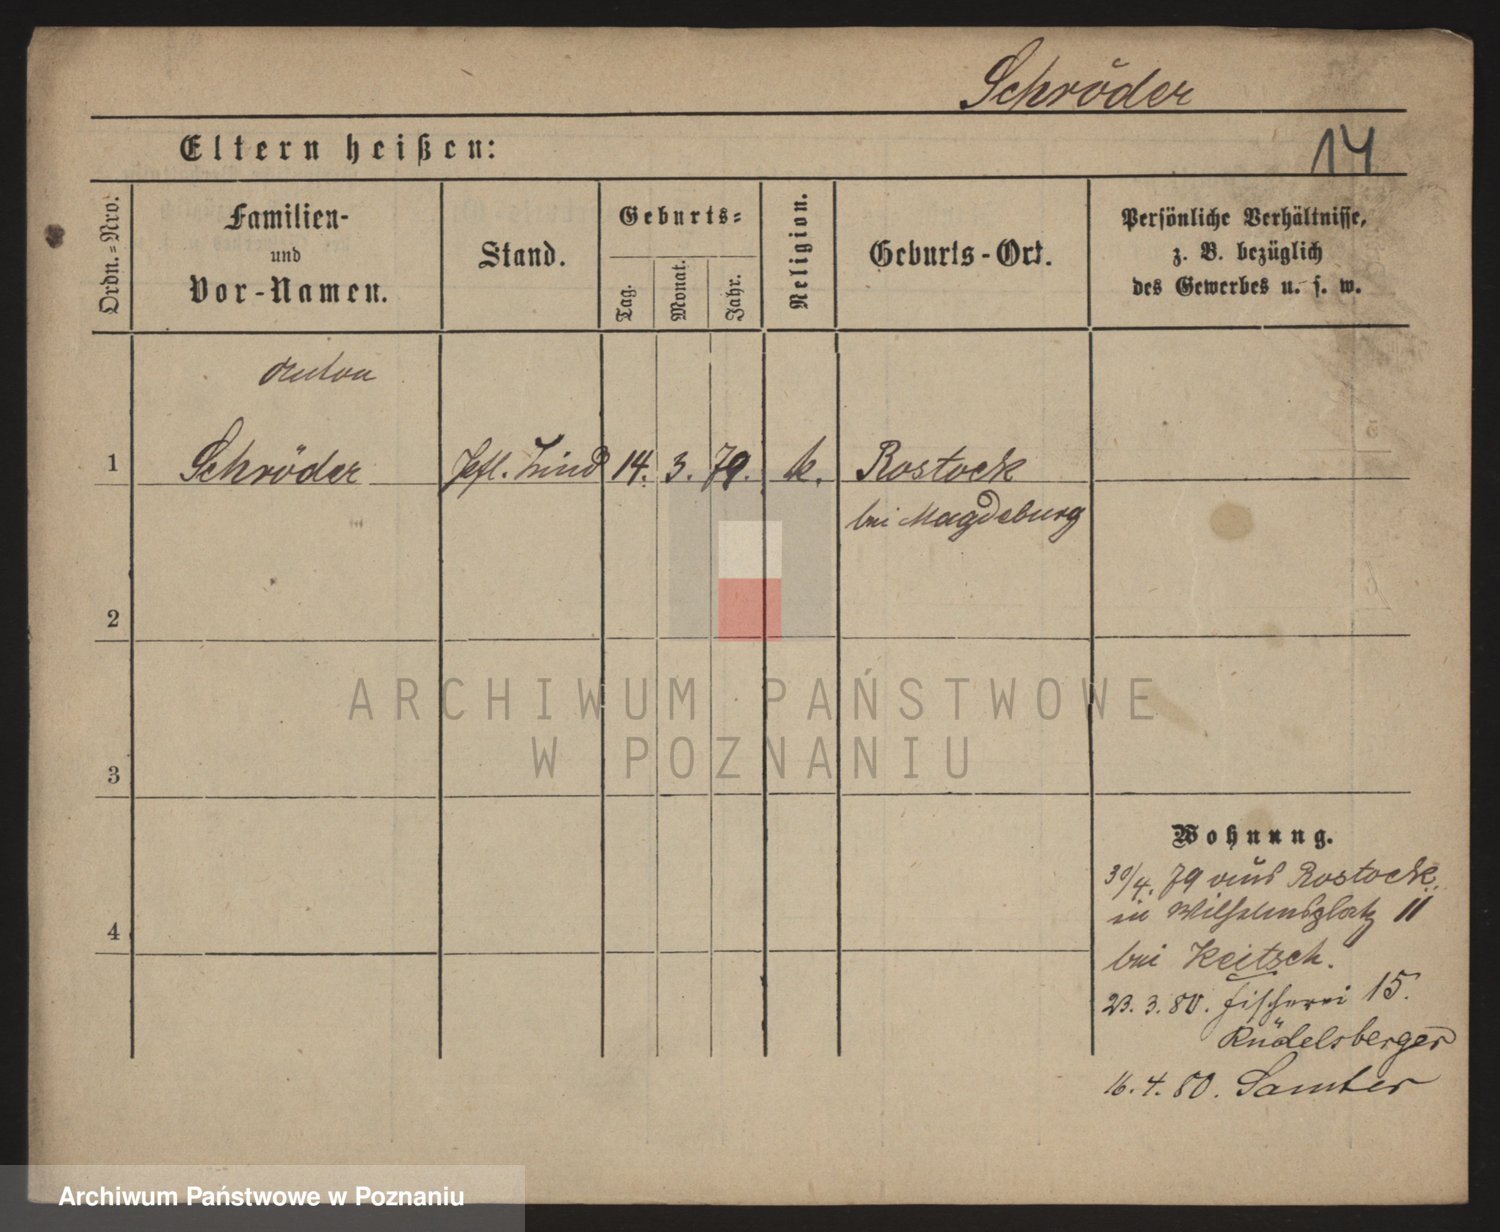 Schröder
14
Eltern heißen:
Ordn.=Nro.
Familien-
und
Vor-Namen.
Stand.
Geburts=
Tag.
Monat.
Jahr.
Religion.
Geburts-Ort.
Persönliche Verhältnisse,
z. B. bezüglich
des Gewerbes u. s. w.
Anton
1 Schröder Pfl. Kind 14. 3. 79. k. Rostock
bei Magdeburg
2
3
4
Wohnung.
30/4. 79 aus Rostock
in Wilhelmsplatz 11
bei Keitsch.
23. 3. 80. Fischerei 15.
Rüdelsberger
16. 4. 80. Samter
ARCHIWUM PAŃSTWOWE
W POZNANIU
Archiwum Państwowe w Poznaniu